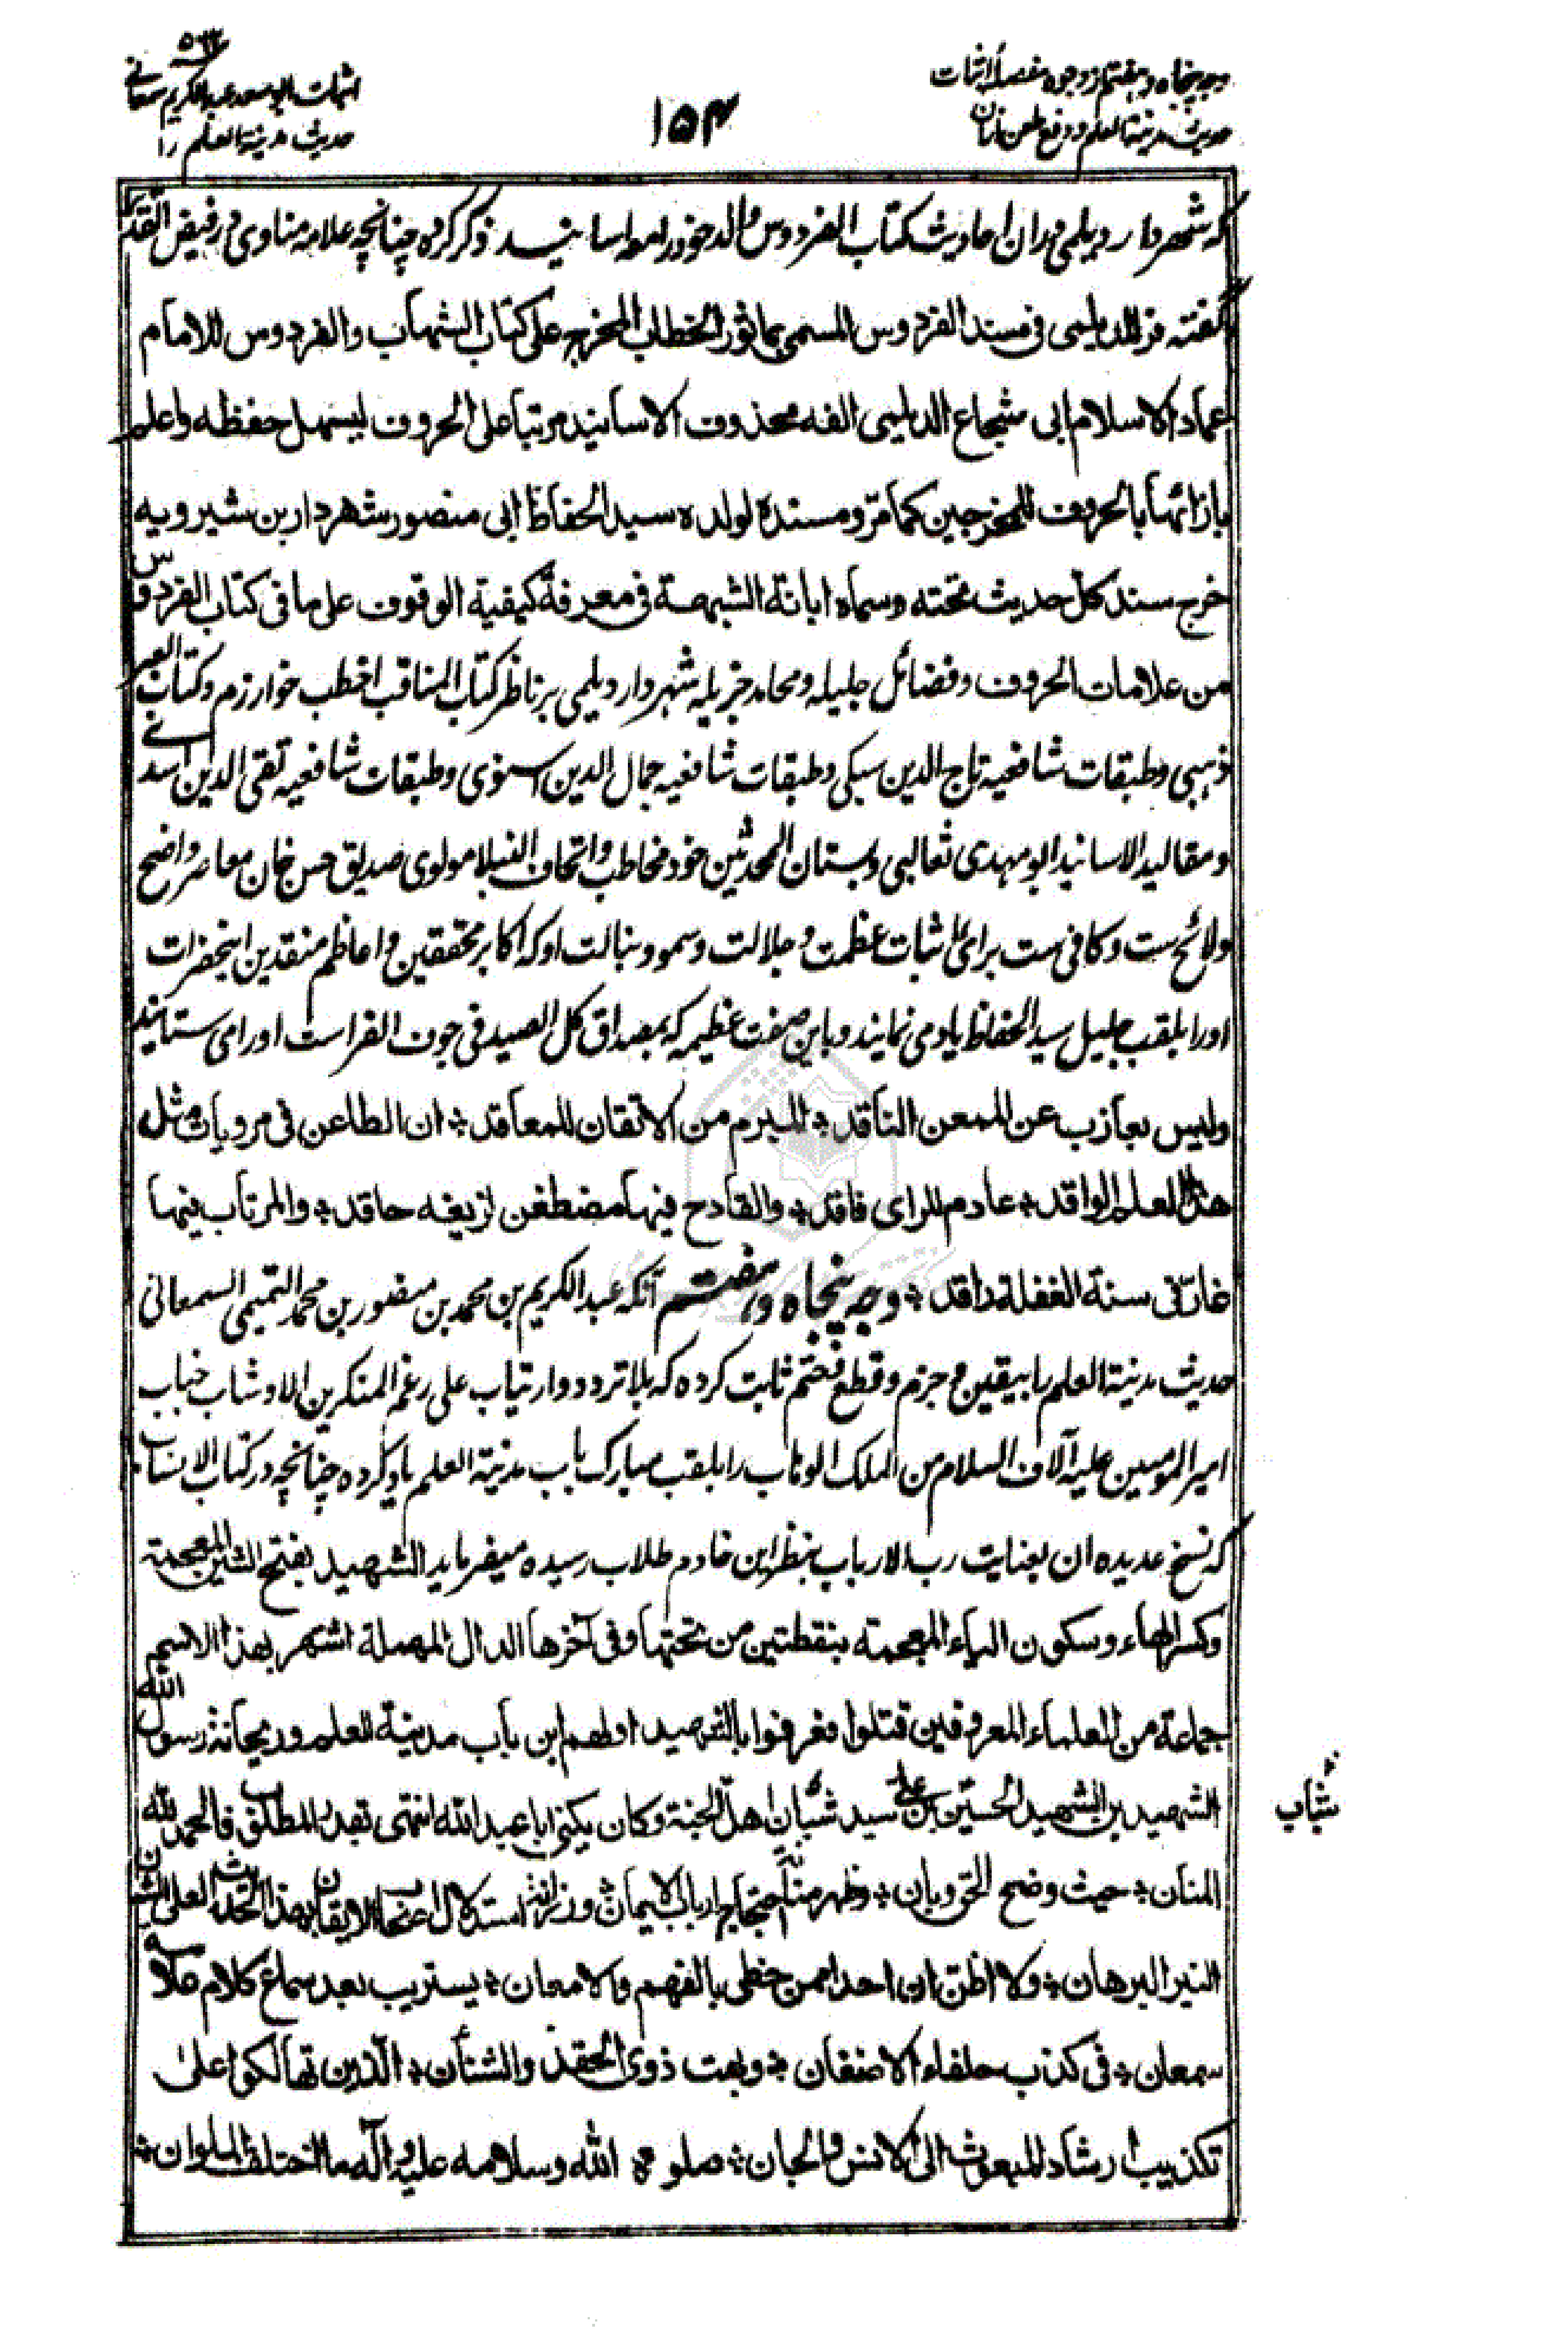 وجه پنجاه و هفتم از وجوه مفصلهٔ اثبات
حدیث مدینة العلم و دفع طعن طاعنان
۱۵۴
۵۶۲
اثبات ابو سعد عبدالکریم سمعانی
حدیث مدینة العلم را
که شهردار دیلمی در ان احادیث کتاب الفردوس والد خود را مع اسانید ذکر کرده چنانچه علامه مناوی در فیض القدیر
گفته فر للدیلمی فی مسند الفردوس المسمی بماثور الخطاب المخرج علی کتاب الشهاب والفردوس للامام
عماد الاسلام ابی شجاع الدیلمی الفه محذوف الاسانید مرتبا علی الحروف لیسهل حفظه واعلم
بازائها بالحروف للمخرجین کما مرّ ومسنده لولده سید الحفاظ ابی منصور شهردار بن شیرویه
خرج سند کل حدیث تحته وسماه ابانة الشبهة فی معرفة کیفیة الوقوف علی ما فی کتاب الفردوس
من علامات الحروف وفضائل جلیله و محامد جزیله شهردار دیلمی بر ناظر کتاب المناقب اخطب خوارزم و کتاب العبر
ذهبی و طبقات شافعیه تاج الدین سبکی و طبقات شافعیه جمال الدین اسنوی و طبقات شافعیه تقی الدین اسدی
و مقالید الاسانید ابو مهدی ثعالبی و بستان المحدثین خود مخاطب و اتحاف النبلا مولوی صدیق حسن خان معاصر واضح
ولائح ست و کافی ست برای اثبات عظمت و جلالت و سمو و نبالت او که اکابر محققین و اعاظم منقدین اینحضرات
اورا بلقب جلیل سید الحفاظ یاد می نمایند و باین صفت عظیمه که بمصداق کل الصید فی جوف الفراست اورا می ستایند
ولیس بعازب عن الممعن الناقد ؞ المبرم من الاتقان للمعاقد ؞ ان الطاعن فی مرویات مثل
هذا العلم الواقد ؞ عادم للرای فاقد ؞ والقادح فیها مضطغن لزیغه حاقد ؞ والمرتاب فیها
غارّ فی سنة الغفلة راقد ؞ وجه پنجاه و هفتم آنکه عبد الکریم بن محمد بن منصور بن محمد التمیمی السمعانی
حدیث مدینة العلم را بیقین و جزم و قطع و ختم ثابت کرده که بلا تردد و ارتیاب علی رغم المنکرین الاوشاب جناب
امیر المومنین علیه آلاف السلام من الملک الوهاب را بلقب مبارک باب مدینة العلم یاد کرده چنانچه در کتاب الانساب
که نسخ عدیده ان بعنایت رب الارباب بنظر این خادم طلاب رسیده میفرماید الشهید بفتح الشین المعجمة
وکسر الهاء وسکون الیاء المعجمة بنقطتین من تحتها وفی آخرها الدال المهملة اشتهر بهذا الاسم
جماعة من العلماء المعروفین قتلوا فعرفوا بالشهید اولهم ابن باب مدینة العلم وریحانة رسول الله
الشهید بن الشهید الحسین بن علی سید شبان اهل الجنة وکان یکنی ابا عبد الله انتهی بقدر المطلوب فالحمد لله
شباب
المنان ؞ حیث وضح الحق وبان ؞ وظهر متانة احتجاج ارباب الایمان ؞ ورزانة استدلال اصحاب الایقان بهذا الحدیث العلی الشان
النیر البرهان ؞ ولا اظن ان احدا ممن حظی بالفهم والامعان ؞ یستریب بعد سماع کلام علامة
سمعان ؞ فی کذب حلفاء الاضغان ؞ وبهت ذوی الحقد والشنأن ؞ الذین تهالکوا علی
تکذیب ارشاد المبعوث الی الانس والجان ؞ صلوة الله وسلامه علیه وآله ما اختلف الملوان ؞